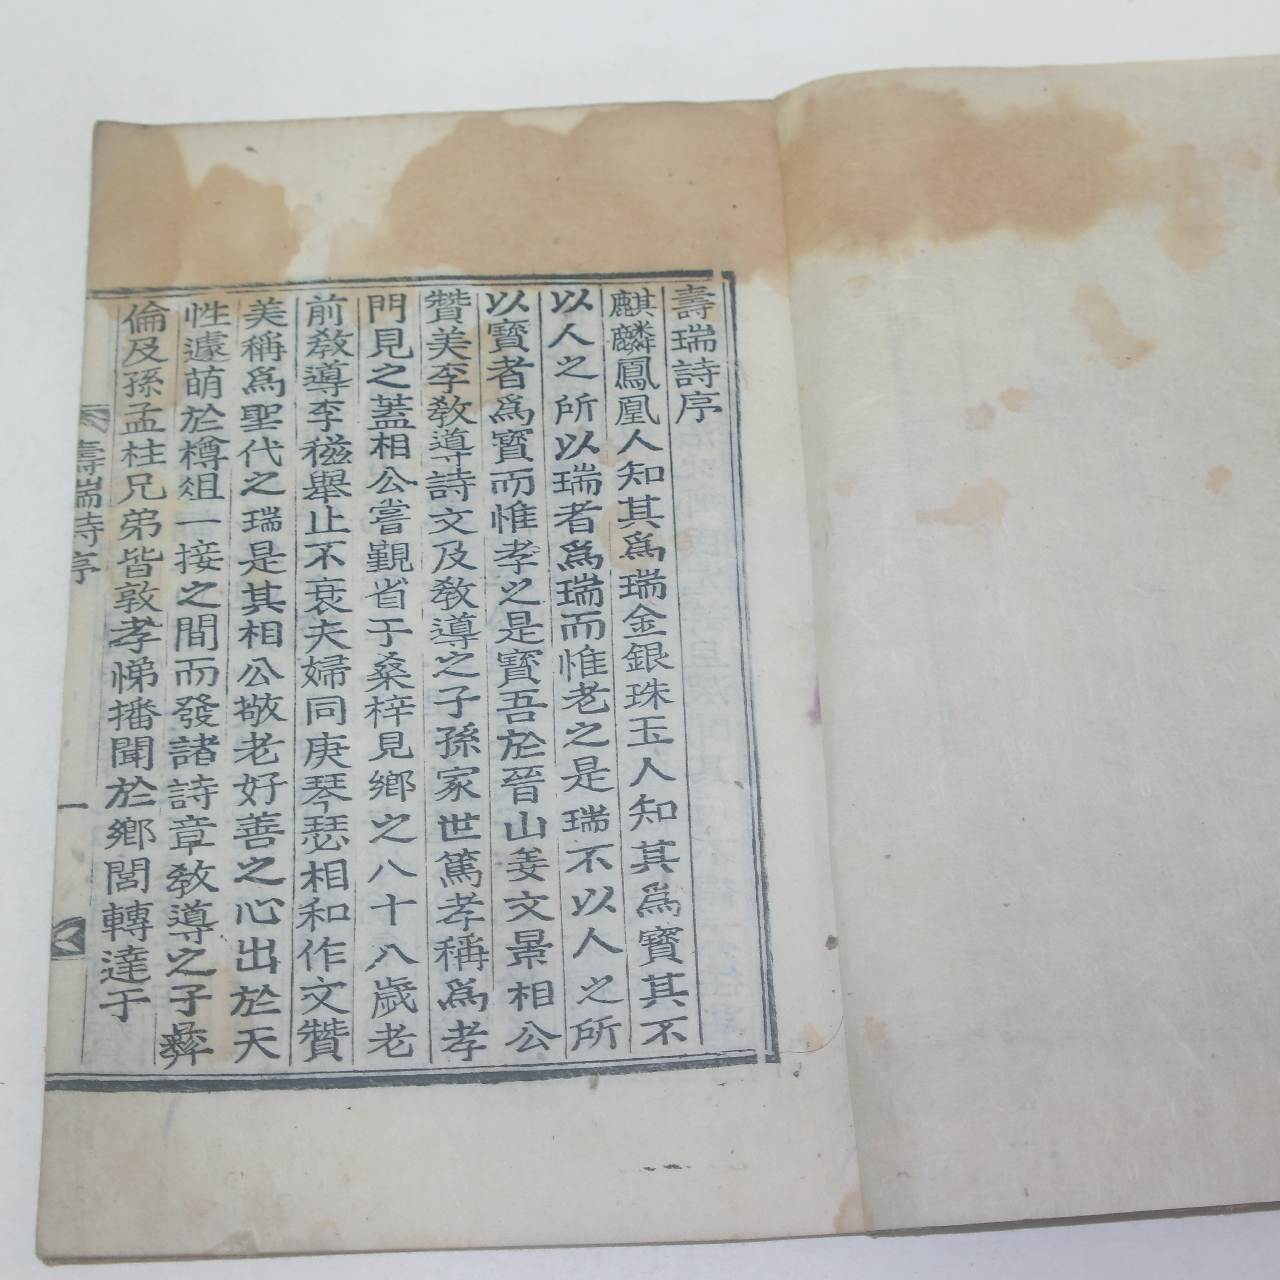 壽瑞詩序
麒麟鳳凰人知其爲瑞金銀珠玉人知其爲寶其不
以人之所以瑞者爲瑞而惟老之是瑞不以人之所
以寶者爲寶而惟孝之是寶吾於晉山姜文景相公
贊美李敎導詩文及敎導之子孫家世篤孝稱爲孝
門見之蓋相公嘗覲省于桑梓見鄕之八十八歲老
前敎導李稵舉止不衰夫婦同庚琴瑟相和作文贊
美稱爲聖代之瑞是其相公敬老好善之心出於天
性遽萌於樽俎一接之間而發諸詩章敎導之子彝
倫及孫孟柱兄弟皆敦孝悌播聞於鄕閭轉達于
壽瑞詩序
一